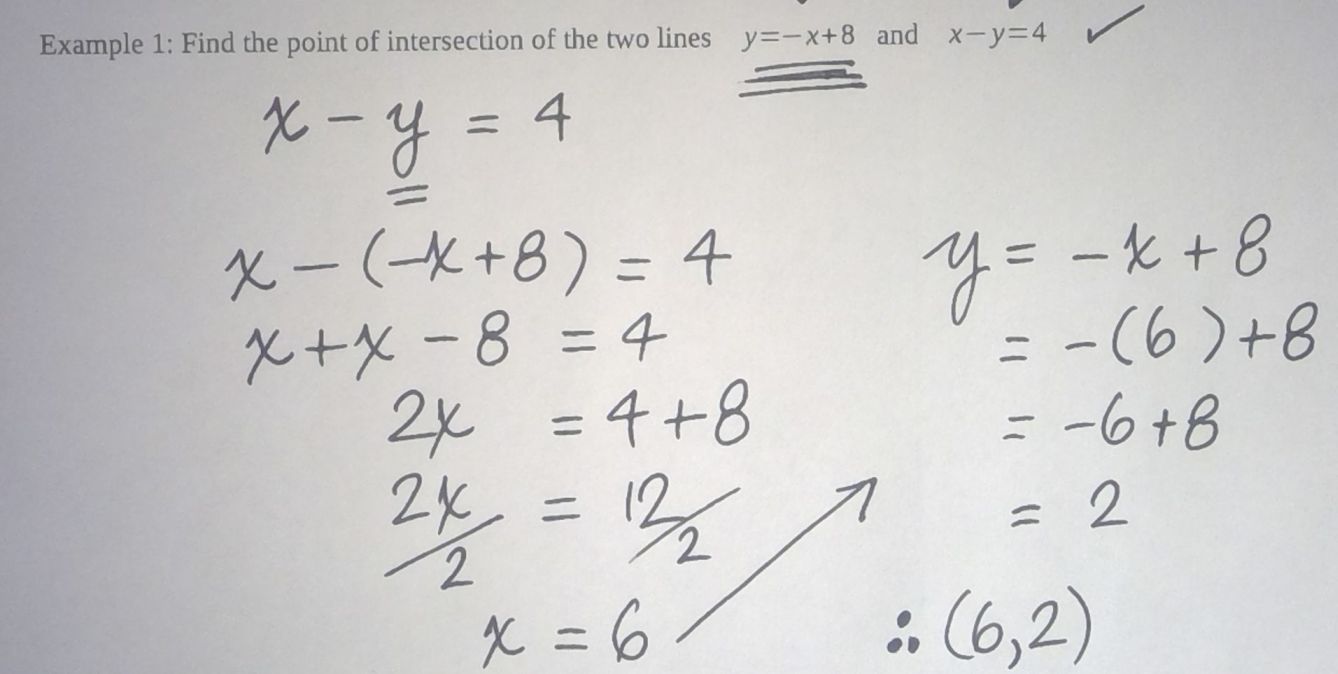 Example 1: Find the point of intersection of the two lines y=−x+8 and x−y=4 ✓
x − y = 4
x − (−x+8) = 4
x+x − 8 = 4
2x = 4+8
2x/2 = 12/2
x = 6
y = −x+8
= −(6)+8
= −6+8
= 2
∴ (6,2)